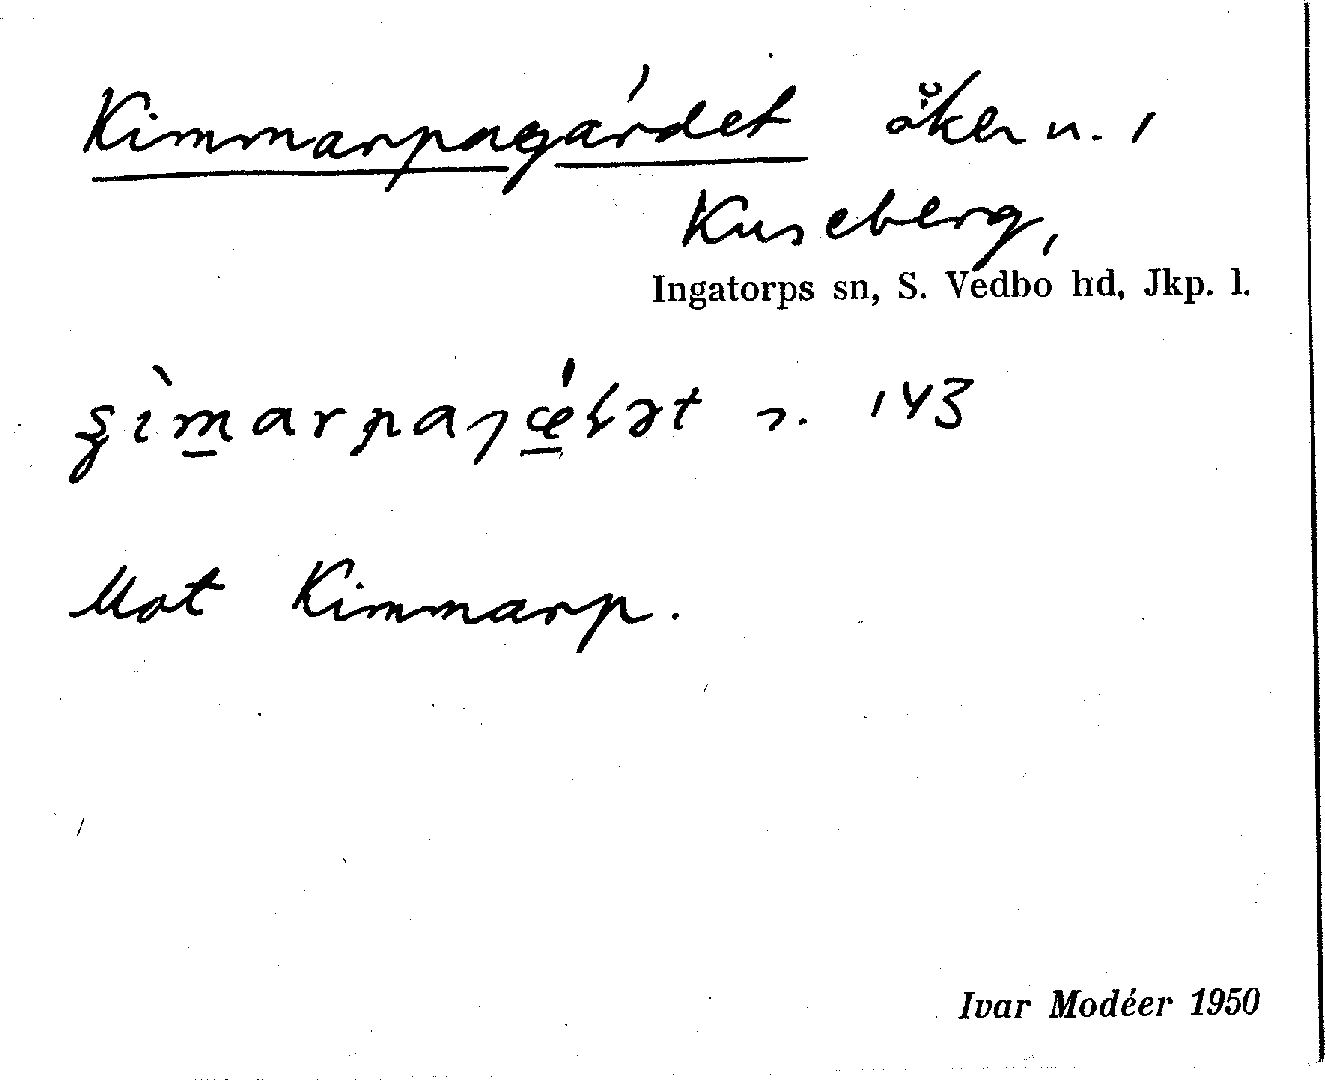 Kimmarpagärdet åker n. 1
Kuseberg,
Ingatorps sn, S. Vedbo hd, Jkp. l.
s. 143
Mot Kimmarp.
Ivar Modéer 1950